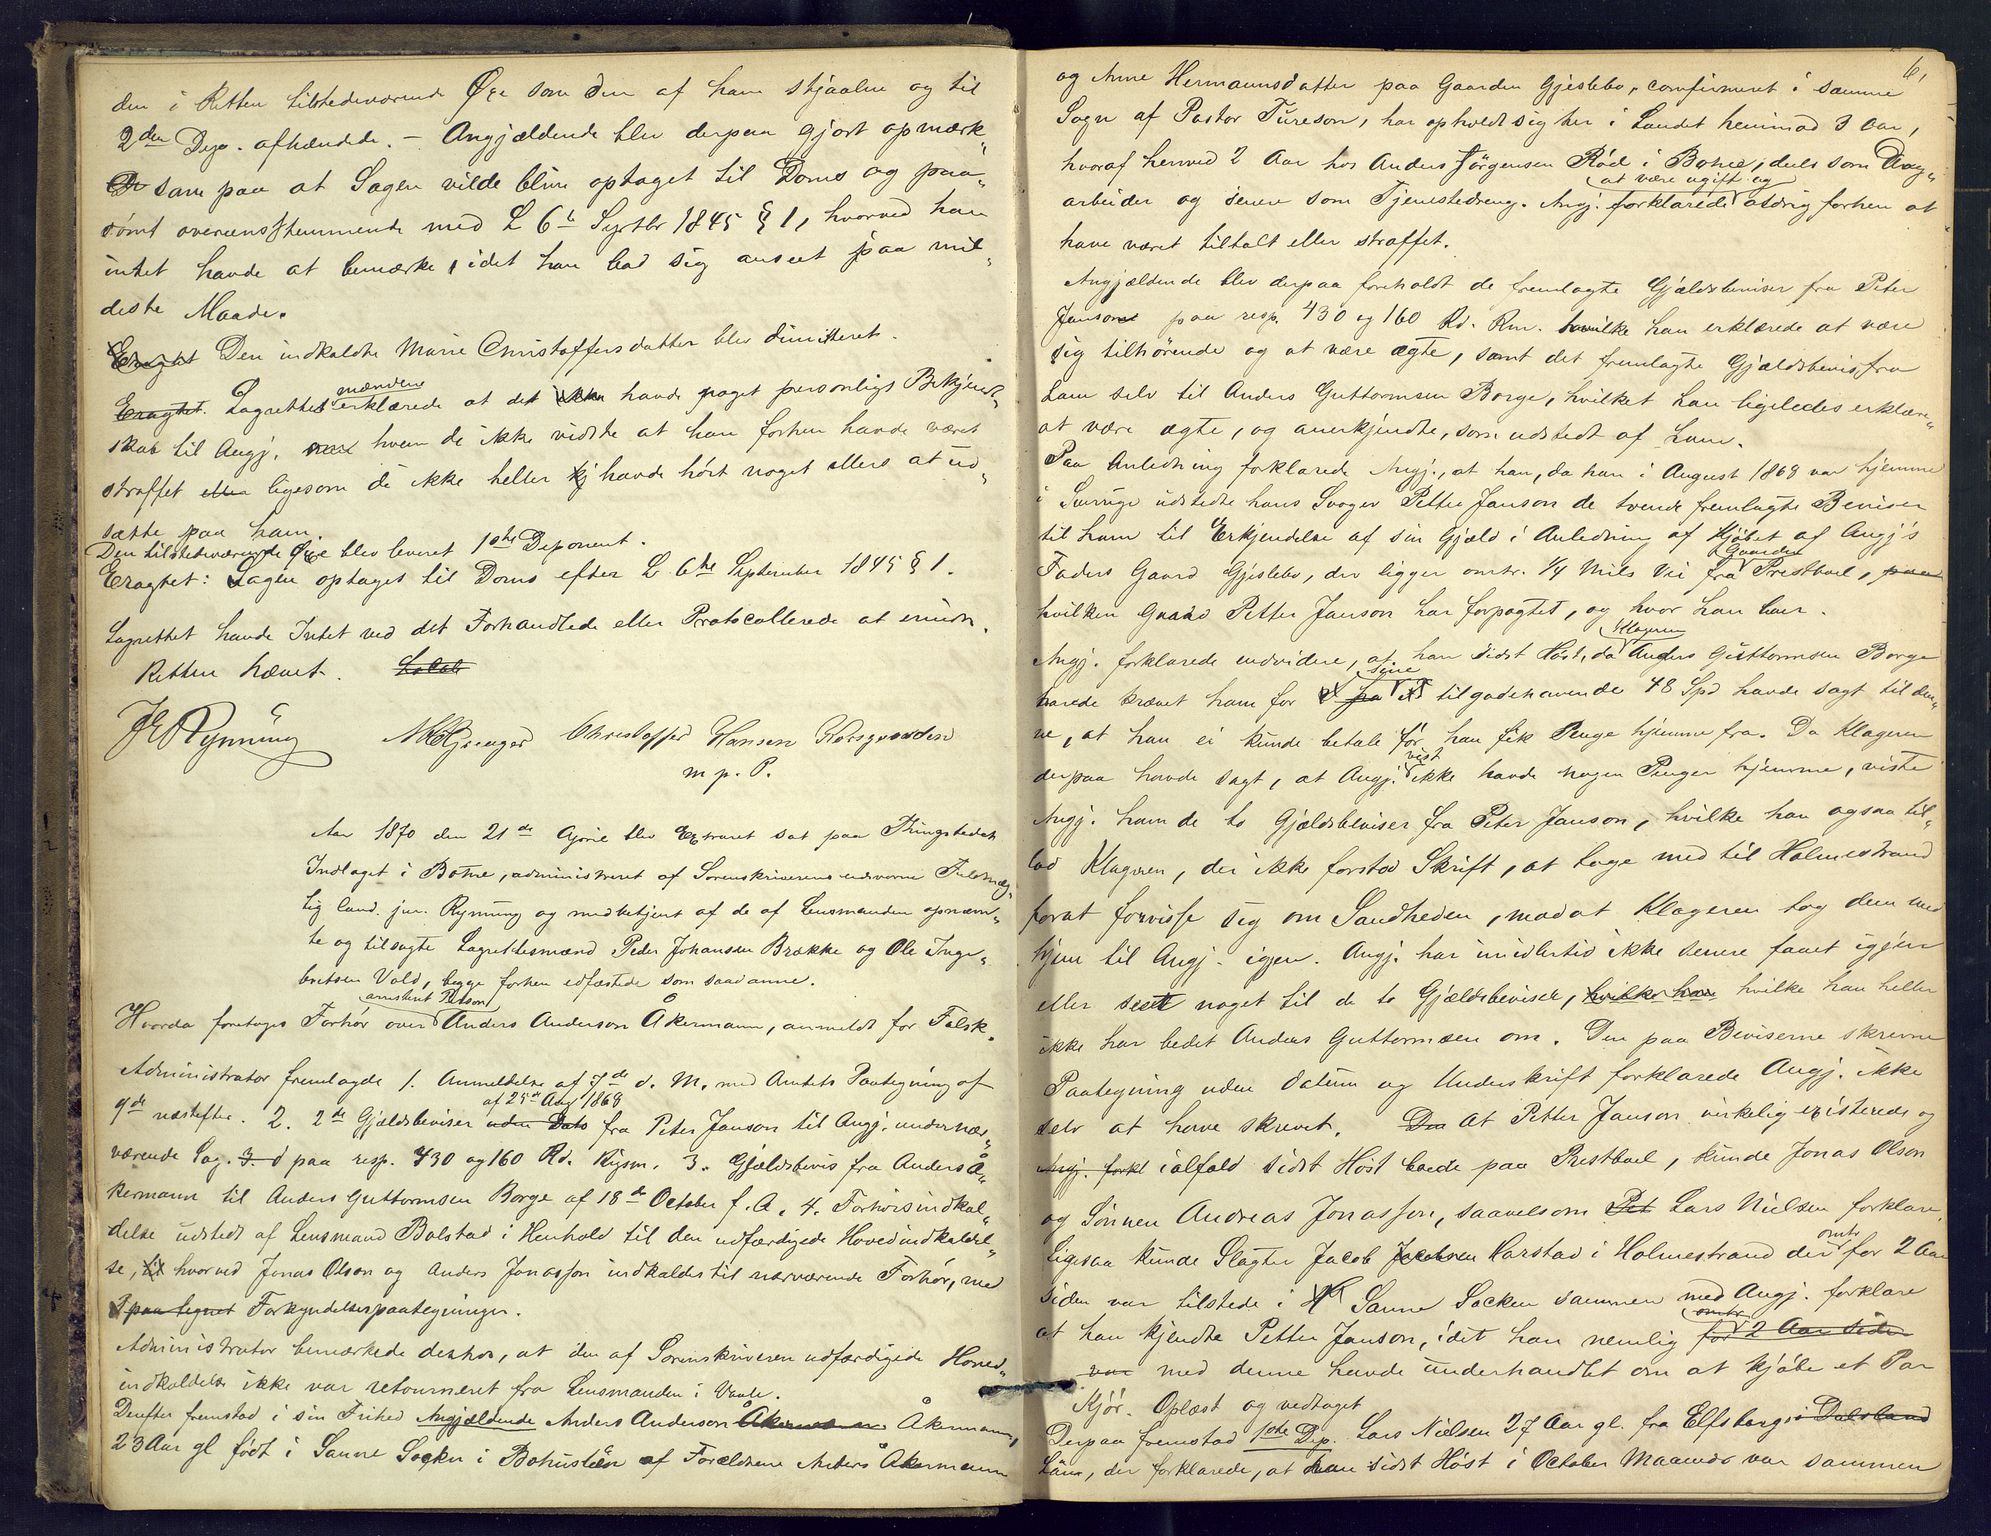 den i Retten tilstedeværende Øxe som den af ham stjaalne og til
2den Dep. afhændede. – Angjældende blev derpaa gjort opmærk-
som paa at Sagen vilde blive optaget til Doms og paa-
sømt overensstemmende med L 6te Septbr 1845 § 1, hvorved han
intet havde at bemærke, idet han bad sig anseet paa mil-
deste Maade.
Eragtet Den indkaldte Marie Christoffersdatter blev dimitteret.
mændene
Eragtet. Lagrettet erklærede at det ikke havde noget personligt Bekjendt-
skab til Angj. hvem de ikke vidste at han forhen havde været
straffet eller ligesom de ikke heller havde hørt noget ellers at ud-
sætte paa ham.
Den tilstedeværende Øxe blev leveret 1ste Deponent.
Eragtet: Sagen optages til Doms efter L. 6te September 1845 § 1.
Lagrettet havde Intet ved det Forhandlede eller Protocollerede at erindre.
Retten hævet.
Rynning Christoffer Hansen
m. p. P.
Aar 1870 den 21de April blev Extraret sat paa Thingstedet
Indlaget i Botne, administreret af Sorenskriverens edsvorne Fuldmæg-
tig Cand. jur. Rynning og medbetjent af de af Lensmanden opnævn-
te og tilsagte Lagrettesmænd Peder Johansen Brække og Ole Inge-
bretsen Vold, begge forhen edfæstede som saadanne.
arresteret Person
Hvorda foretoges Forhør over Anders Anderson Åkermann, anmeldt for Falsk.
Administrator fremlagde 1. Anmeldelse af 7de d. M. med Amtets Paategning af
9de næstefter. 2. 2de Gjældsbeviser uden Dato fra Peter Janson til Angj. undernær-
af 25de Aug 1869
værende Sag. 3. d paa resp. 430 og 160 Rd. Rigsm. 3. Gjældsbevis fra Anders Å-
kermann til Anders Guttormsen Borge af 18de October f. A. 4. Forhørsindkal-
delse udstedt af Lensmand Bolstad i Henhold til den udfærdigede Hovedindkaldel-
se, til hvorved Jonas Olson og Anders Jonasson indkaldes til nærværende Forhør, med
paategnet Forkyndelsespaategninger.
Administrator bemærkede derhos, at den af Sorenskriveren udfærdigede Hoved-
indkaldelse ikke var retourneret fra Lensmanden i Vaale.
Derefter fremstod i sin Frihed Angjældende Anders Anderson Åkermann,
23 Aar gl født i Sanne Socken i Bohuslän af Forældrene Anders Åkermann
6,
og Anne Hermannsdatter paa Gaarden Gjeslebo, confirmeret i samme
Sogn af Pastor Tureson, har opholdt sig her i Landet henimod 3 Aar,
hvoraf henved 2 Aar hos Anders Jörgensen Röd i Botne, dels som Dag-
at være ugift og
arbeider og senere som Tjenestedreng. Angj. forklarede aldrig forhen at
have været tiltalt eller straffet.
Angjældende blev derpaa foreholdt de fremlagte Gjældsbeviser fra Peter
Janson paa resp. 430 og 160 Rd. Rm. hvilke han erklærede at være
sig tilhørende og at være ægte, samt det fremlagte Gjældsbevis fra
ham selv til Anders Guttormsen Borge, hvilket han ligeledes erklære-
at være ægte, og anerkjendte, som udstedt af ham.
Paa Anledning forklarede Angj., at han, da han i August 1869 var hjemme
i Sverrige udstedte hans Svoger Petter Janson de tvende fremlagte Beviser
til ham til Erkjendelse af sin Gjæld i Anledning af Kjøbet af Angj's
Gaarden
Faders Gaard Gjeslebo, der ligger omtr. 1/4 Miils Vei fra Prestboel, paa
hvilken Gaard Petter Janson har forpagtet, og hvor han boer.
Klageren
Angj. forklarede endvidere, at han sidst Høst, da Anders Guttormsen Borge
sine
havde krævet ham for tilgodehavende 48 Spd havde sagt til den-
ne, at han ei kunde betale før han fik Penge hjemme fra. Da Klageren
vist
derpaa havde sagt, at Angj. ikke havde nogen Penger hjemme, viste
Angj. ham de to Gjældsbeviser fra Peter Janson, hvilke han ogsaa til-
lod Klageren, der ikke forstod Skrift, at tage med til Holmestrand
forat forvisse sig om Sandheden, mod at Klageren tog dem med
hjem til Angj. igjen. Angj. har imidlertid ikke senere faaet igjen
eller seet noget til de to Gjældsbeviser, hvilke han hvilke han heller
ikke har bedet Anders Guttormsen om. Den paa Beviserne skrevne
Paategning uden Datum og Underskrift forklarede Angj. ikke
selv at have skrevet. Den At Petter Janson virkelig existerede og
Angj. forkl ialfald sidst Høst boede paa Prestboel, kunde Jonas Olson
og Sønnen Andreas Jonasson, saavelsom Pet Lars Nielsen forklare
omtr
ligesaa kunde Slagter Jacob Jacobsen Harstad i Holmestrand der for 2 Aar
siden var tilstede i Sanne Socken sammen med Angj. forklare
omtr
at han kjendte Petter Janson, idet han nemlig for 2 Aar siden
var med denne havde underhandlet om at kjøbe et Par
Kjør. Oplæst og vedtaget
Derpaa fremstod 1ste Dep. Lars Nielsen 27 Aar gl. fra Elfsborgs i Dalsland
Län, der forklarede, at han sidst Høst i October Maaned var sammen